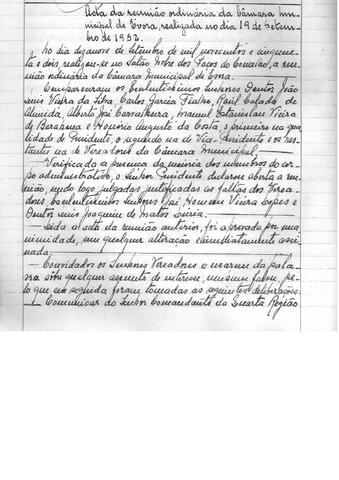 Acta da reunião ordinária da Câmara Mu-
nicipal de Evora, realizada no dia 19 de Setem-
bro de 1952.
No dia dezanove de Setembro de mil novecentos e cinquen-
ta e dois, realizou-se no Salão Nobre dos Paços do Concelho, a reu-
nião ordinária da Câmara Municipal de Evora.
Compareceram os Excelentissimos Senhores Doutor João
Luis Vieira da Silva, Carlos Garcia Fialho, Raúl Calado de
Almeida, Alberto José Carvalheira, Manuel Estanislau Vieira
de Barahona e Honório Augusto da Costa, o primeiro na qua-
lidade de Presidente, o segundo na de Vice-Presidente e os res-
tantes na de Vereadores da Câmara Municipal.
Verificada a presença da maioria dos membros do cor-
po administrativo, o Senhor Presidente declarou aberta a reu-
nião, sendo logo, julgadas justificadas as faltas dos Verea-
dores Excelentissimos Senhores José Homem Vieira Lopes e
Doutor Luis Joaquim de Matos
— Lida a acta da reunião anterior, foi aprovada por una-
nimidade, sem qualquer alteração e imediatamente assi-
nada.
— Convidados os Senhores Vereadores a usarem da pala-
vra sobre qualquer assunto de interesse, nenhum falou, pe-
lo que em seguida foram tomadas as seguintes deliberações:
— Comunicar ao Senhor Comandante da Quarta Região